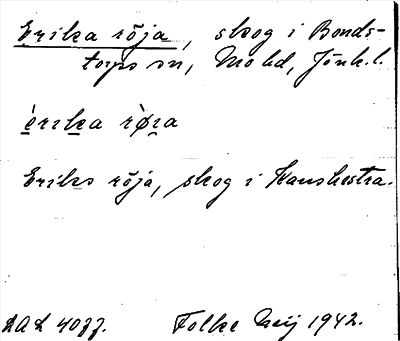 Erika röja, skog i Bonds-
torps sn, Mo hd, Jönk.l.
èrıka rø̀ıa
Eriks röja, skog i Kanshestra.
LAL 4077. Folke Meij 1942.